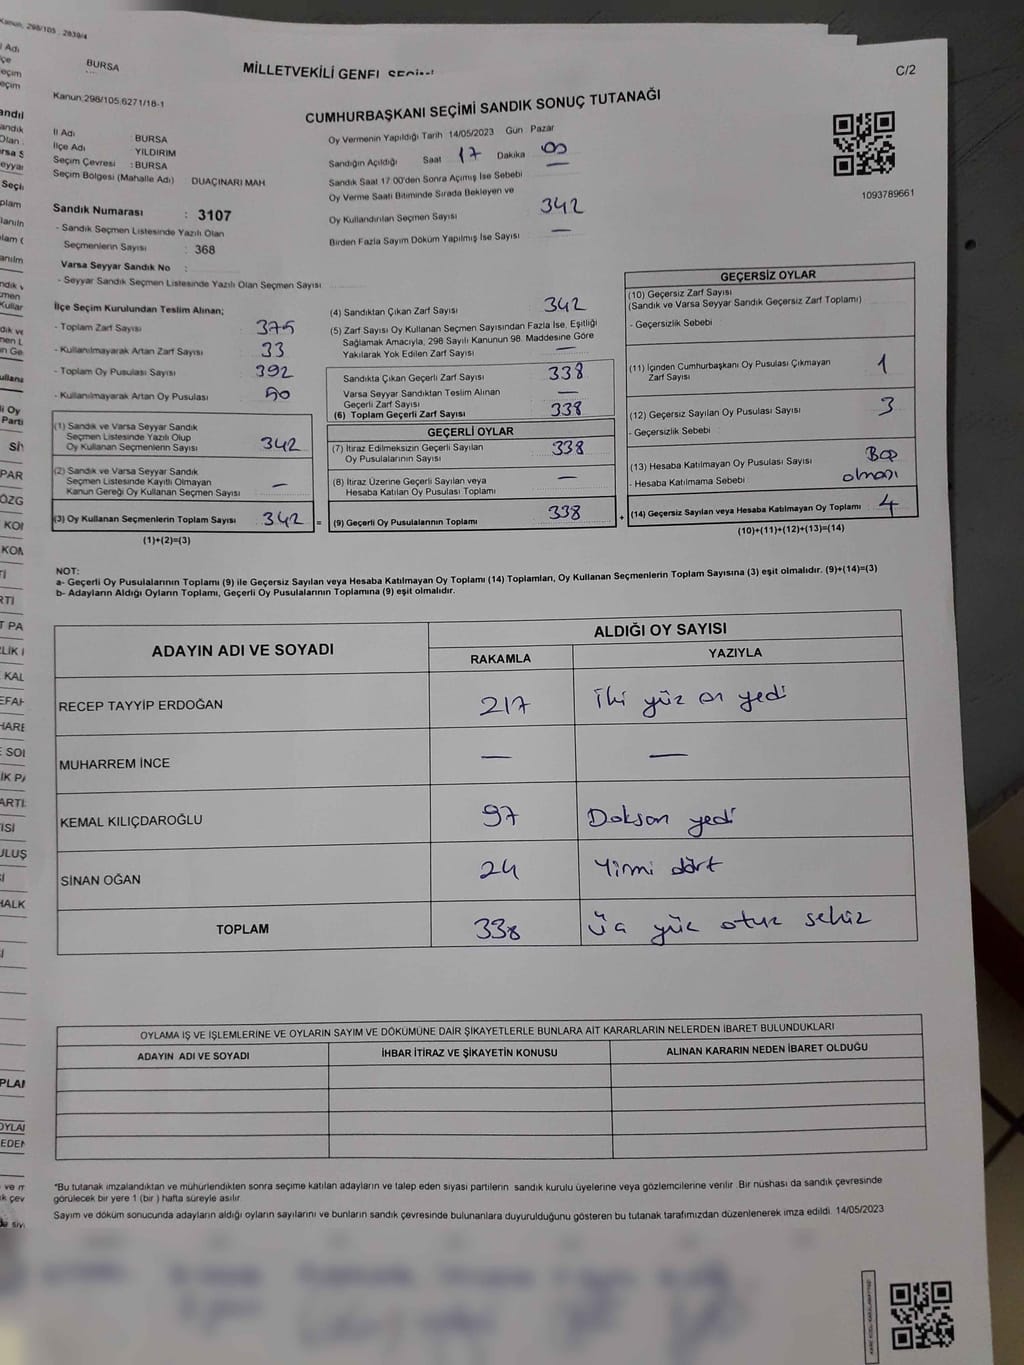 Kanun: 298/105 , 2839/4
BURSA
MİLLETVEKİLİ GENEL SEÇİMİ
C/2
Kanun:298/105,6271/18-1
CUMHURBAŞKANI SEÇİMİ SANDIK SONUÇ TUTANAĞI
İl Adı : BURSA
İlçe Adı : YILDIRIM
Seçim Çevresi : BURSA
Seçim Bölgesi (Mahalle Adı) : DUAÇINARI MAH
Oy Vermenin Yapıldığı Tarih 14/05/2023 Gün Pazar
Sandığın Açıldığı Saat 17 Dakika 00
Sandık Saat 17.00'den Sonra Açımış İse Sebebi —
Oy Verme Saati Bitiminde Sırada Bekleyen ve
Oy Kullandırılan Seçmen Sayısı 342
Birden Fazla Sayım Döküm Yapılmış İse Sayısı —
1093789661
Sandık Numarası : 3107
- Sandık Seçmen Listesinde Yazılı Olan
Seçmenlerin Sayısı : 368
Varsa Seyyar Sandık No :
- Seyyar Sandık Seçmen Listesinde Yazılı Olan Seçmen Sayısı
İlçe Seçim Kurulundan Teslim Alınan;
- Toplam Zarf Sayısı 375
- Kullanılmayarak Artan Zarf Sayısı 33
- Toplam Oy Pusulası Sayısı 392
- Kullanılmayarak Artan Oy Pusulası 50
(1) Sandık ve Varsa Seyyar Sandık
Seçmen Listesinde Yazılı Olup
Oy Kullanan Seçmenlerin Sayısı 342
(2) Sandık ve Varsa Seyyar Sandık
Seçmen Listesinde Kayıtlı Olmayan
Kanun Gereği Oy Kullanan Seçmen Sayısı —
(3) Oy Kullanan Seçmenlerin Toplam Sayısı 342 =
(1)+(2)=(3)
(4) Sandıktan Çıkan Zarf Sayısı 342
(5) Zarf Sayısı Oy Kullanan Seçmen Sayısından Fazla İse, Eşitliği
Sağlamak Amacıyla, 298 Sayılı Kanunun 98. Maddesine Göre
Yakılarak Yok Edilen Zarf Sayısı —
Sandıkta Çıkan Geçerli Zarf Sayısı 338
Varsa Seyyar Sandıktan Teslim Alınan
Geçerli Zarf Sayısı —
(6) Toplam Geçerli Zarf Sayısı 338
GEÇERLİ OYLAR
(7) İtiraz Edilmeksizin Geçerli Sayılan
Oy Pusulalarının Sayısı 338
(8) İtiraz Üzerine Geçerli Sayılan veya
Hesaba Katılan Oy Pusulası Toplamı —
(9) Geçerli Oy Pusulalarının Toplamı 338 +
GEÇERSİZ OYLAR
(10) Geçersiz Zarf Sayısı
(Sandık ve Varsa Seyyar Sandık Geçersiz Zarf Toplamı)
- Geçersizlik Sebebi
(11) İçinden Cumhurbaşkanı Oy Pusulası Çıkmayan
Zarf Sayısı 1
(12) Geçersiz Sayılan Oy Pusulası Sayısı 3
- Geçersizlik Sebebi
(13) Hesaba Katılmayan Oy Pusulası Sayısı
- Hesaba Katılmama Sebebi olması
(14) Geçersiz Sayılan veya Hesaba Katılmayan Oy Toplamı 4
(10)+(11)+(12)+(13)=(14)
NOT:
a- Geçerli Oy Pusulalarının Toplamı (9) ile Geçersiz Sayılan veya Hesaba Katılmayan Oy Toplamı (14) Toplamları, Oy Kullanan Seçmenlerin Toplam Sayısına (3) eşit olmalıdır. (9)+(14)=(3)
b- Adayların Aldığı Oyların Toplamı, Geçerli Oy Pusulalarının Toplamına (9) eşit olmalıdır.
ADAYIN ADI VE SOYADI
ALDIĞI OY SAYISI
RAKAMLA YAZIYLA
RECEP TAYYİP ERDOĞAN 217 İki yüz on yedi
MUHARREM İNCE — —
KEMAL KILIÇDAROĞLU 97 Doksan yedi
SİNAN OĞAN 24 Yirmi dört
TOPLAM 338 Üç yüz otuz sekiz
OYLAMA İŞ VE İŞLEMLERİNE VE OYLARIN SAYIM VE DÖKÜMÜNE DAİR ŞİKAYETLERLE BUNLARA AİT KARARLARIN NELERDEN İBARET BULUNDUKLARI
ADAYIN ADI VE SOYADI İHBAR İTİRAZ VE ŞİKAYETİN KONUSU ALINAN KARARIN NEDEN İBARET OLDUĞU
*Bu tutanak imzalandıktan ve mühürlendikten sonra seçime katılan adayların ve talep eden siyasi partilerin sandık kurulu üyelerine veya gözlemcilerine verilir. Bir nüshası da sandık çevresinde
görülecek bir yere 1 (bir ) hafta süreyle asılır.
Sayım ve döküm sonucunda adayların aldığı oyların sayılarını ve bunların sandık çevresinde bulunanlara duyurulduğunu gösteren bu tutanak tarafımızdan düzenlenerek imza edildi. 14/05/2023